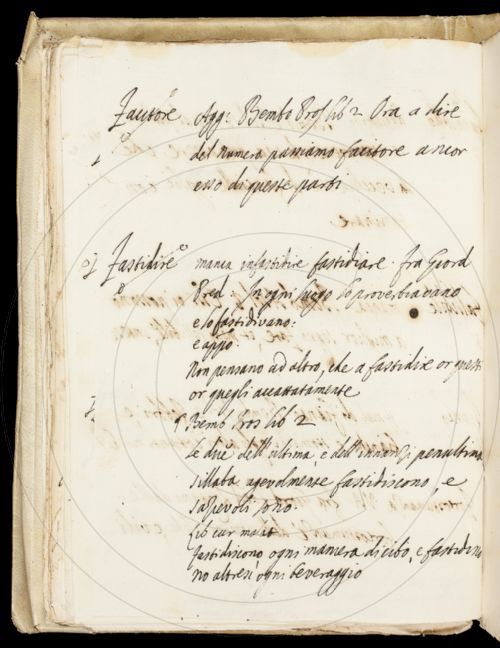 Facitore Agg: Bembo Pros lib 2 Ora a dire
del numero passiamo facitore ancor
esso di queste parti
Fastidire manca infastidire fastidiare. fra Giord
Pred In ogni luogo lo proverbiavano
e lo fastidivano:
e appo
Non pensano ad altro, che a fastidire or questi
or quegli accattatamente
¶ Bemb Pros lib 2
Le due dell'ultima, e dell'innanzi penultima
sillaba agevolmente fastidiscono, e
sono.
Lib cur malat
fastidiscono ogni maniera di cibo, e fastidisco
no altresì ogni beveraggio